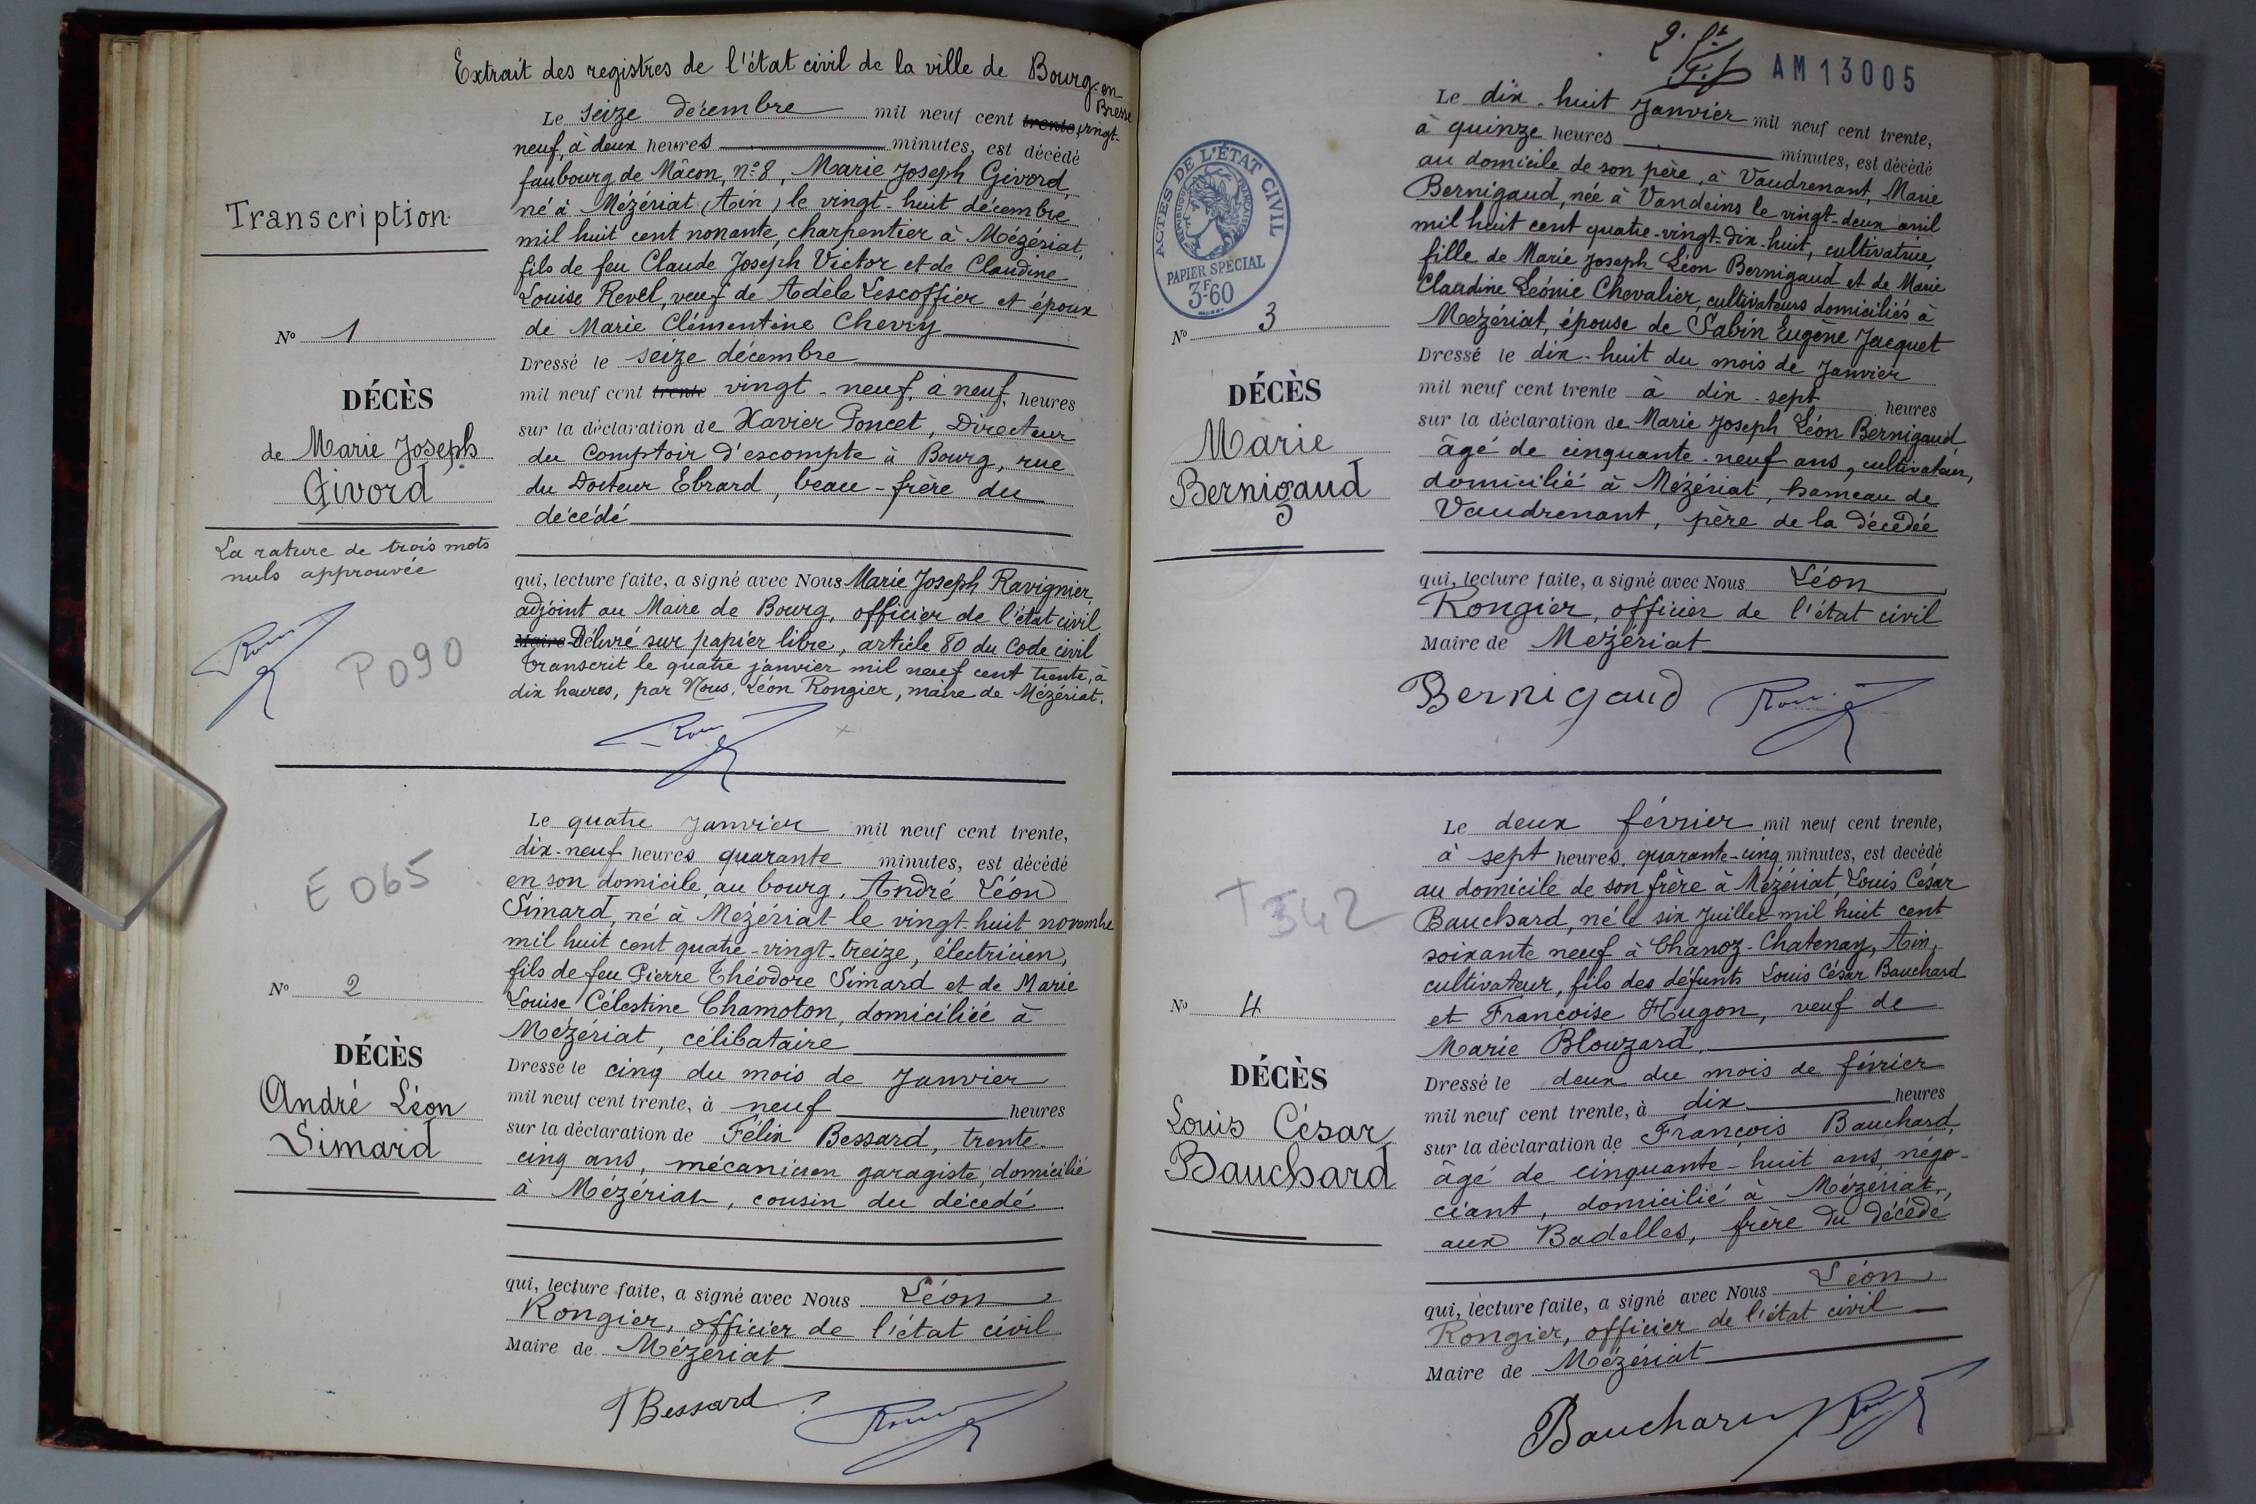 Extrait des registres de l'état civil de la ville de Bourg-en
Bresse
Le seize décembre mil neuf cent trente vingt-
neuf, à deux heures minutes, est décédé
faubourg de Mâcon, n° 8, Marie Joseph Givord,
né à Mézériat (Ain) le vingt-huit décembre
mil huit cent nonante, charpentier à Mézériat,
fils de feu Claude Joseph Victor et de Claudine
Louise Revel, veuf de Adèle Lescoffier et époux
de Marie Clémentine Chevry
Dressé le seize décembre
mil neuf cent trente vingt-neuf, à neuf, heures
sur la déclaration de Xavier Poncet, Directeur
du Comptoir d'escompte à Bourg, rue
du Docteur Ebrard, beau-frère du
décédé
qui, lecture faite, a signé avec Nous Marie Joseph Ravignier
adjoint au Maire de Bourg, officier de l'état civil
Maire Délivré sur papier libre, article 80 du Code civil
Transcrit le quatre janvier mil neuf cent trente, à
dix heures, par Nous, Léon Rongier, maire de Mézériat.
Transcription
N° 1
DÉCÈS
de Marie Joseph
Givord
La rature de trois mots
nuls approuvée
P090
Le quatre Janvier mil neuf cent trente,
dix-neuf heures quarante minutes, est décédé
en son domicile, au bourg, André Léon
Simard, né à Mézériat le vingt-huit novembre
mil huit cent quatre-vingt-treize, électricien,
fils de feu Pierre Théodore Simard et de Marie
Louise Célestine Chamoton, domiciliée à
Mézériat, célibataire
Dressé le cinq du mois de Janvier
mil neuf cent trente, à neuf heures
sur la déclaration de Félix Bessard, trente-
cinq ans, mécanicien garagiste, domicilié
à Mézériat, cousin du décédé
qui, lecture faite, a signé avec Nous Léon
Rongier, officier de l'état civil
Maire de Mézériat
Bessard
E065
N° 2
DÉCÈS
André Léon
Simard
AM13005
Le dix-huit Janvier mil neuf cent trente,
à quinze heures minutes, est décédé
au domicile de son père, à Vaudrenant, Marie
Bernigaud, née à Vandeins le vingt-deux avril
mil huit cent quatre-vingt-dix-huit, cultivatrice,
fille de Marie Joseph Léon Bernigaud et de Marie
Claudine Léonie Chevalier, cultivateurs domiciliés à
Mézériat, épouse de Sabin Eugène Jacquet
Dressé le dix-huit du mois de Janvier
mil neuf cent trente à dix-sept heures
sur la déclaration de Marie Joseph Léon Bernigaud
âgé de cinquante-neuf ans, cultivateur,
domicilié à Mézériat, hameau de
Vaudrenant, père de la décédée
qui, lecture faite, a signé avec Nous Léon
Rongier, officier de l'état civil
Maire de Mézériat
Bernigaud
ACTES DE L'ÉTAT CIVIL
RÉPUBLIQUE FRANÇAISE
PAPIER SPÉCIAL
3F60
N° 3
DÉCÈS
Marie
Bernigaud
Le deux février mil neuf cent trente,
à sept heures quarante-cinq minutes, est décédé
au domicile de son frère à Mézériat, Louis César
Bauchard, né le six Juillet mil huit cent
soixante neuf à Chanoz-Chatenay, Ain,
cultivateur, fils des défunts Louis César Bauchard
et Françoise Hugon, veuf de
Marie Blouzard,
Dressé le deux du mois de février
mil neuf cent trente, à dix heures
sur la déclaration de François Bauchard,
âgé de cinquante-huit ans, négo-
ciant, domicilié à Mézériat,
aux Badelles, frère du décédé
qui, lecture faite, a signé avec Nous Léon
Rongier, officier de l'état civil
Maire de Mézériat
Bauchard
T342
N° 4
DÉCÈS
Louis César
Bauchard